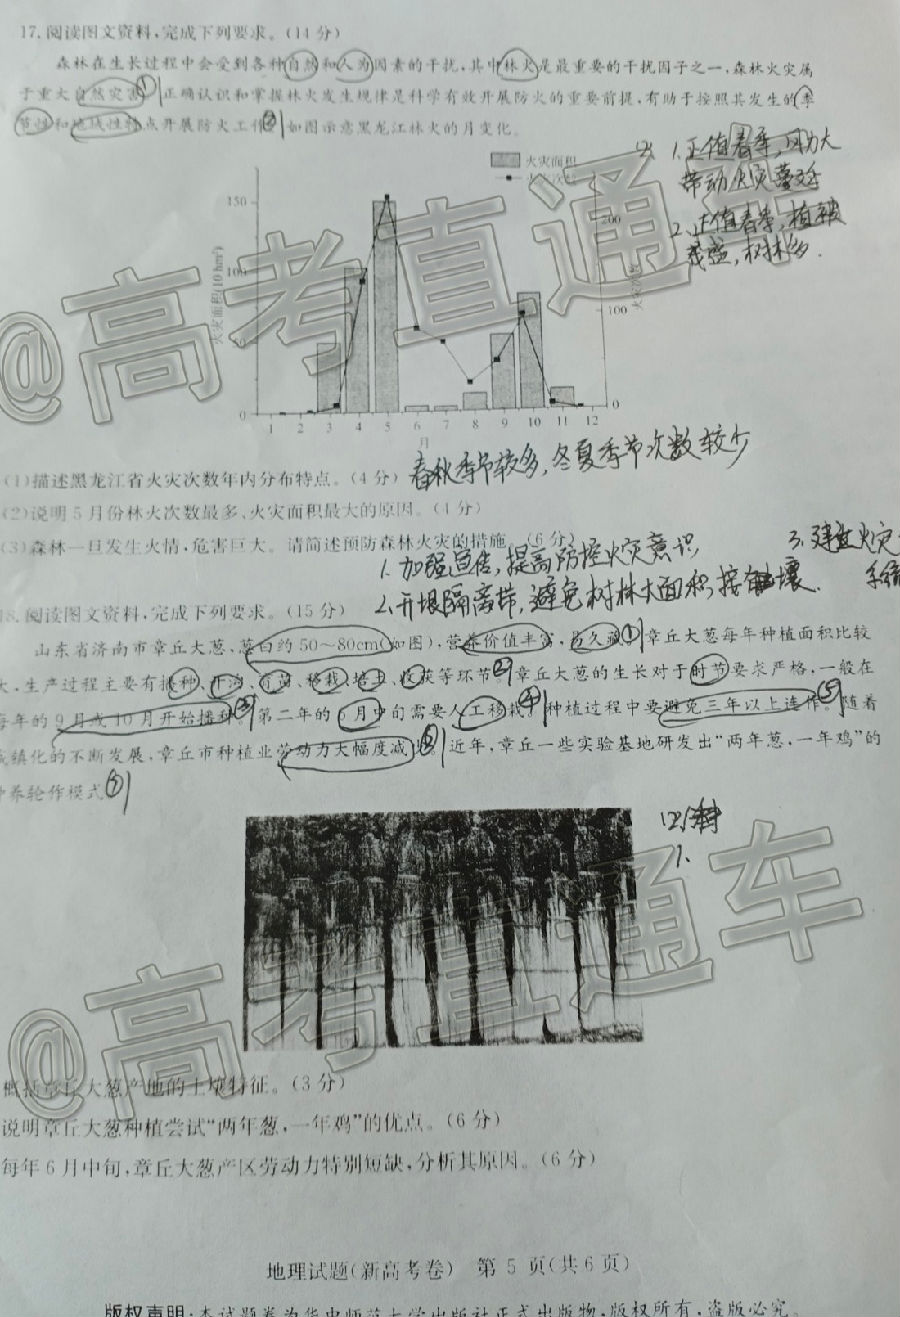 17.阅读图文资料,完成下列要求。(14分)
森林在生长过程中会受到各种自然和人为因素的干扰,其中林火是最重要的干扰因子之一,森林火灾属
于重大自然灾害①正确认识和掌握林火发生规律是科学有效开展防火的重要前提,有助于按照其发生的季
节性和地域性特点开展防火工作②如图示意黑龙江林火的月变化。
2) 1.正值春季,风力大
带动火灾蔓延
2.正值春季,植被
茂盛,树林多.
火灾面积
火灾次数
150
200
100
100
火灾面积(10 hm²)
火灾次数
0
0
1 2 3 4 5 6 7 8 9 10 11 12
月
春秋季节较多,冬夏季节次数较少
(1)描述黑龙江省火灾次数年内分布特点。(4分)
(2)说明5月份林火次数最多、火灾面积最大的原因。(4分)
(3)森林一旦发生火情,危害巨大。请简述预防森林火灾的措施。(6分)
1.加强宣传,提高防控火灾意识
3.建立火灾
2.开垦隔离带,避免树林大面积接壤.
18.阅读图文资料,完成下列要求。(15分)
山东省济南市章丘大葱、葱白约50~80cm(如图),营养价值丰富,历久①章丘大葱每年种植面积比较
大,生产过程主要有播种、开沟、育苗、移栽、培土、收获等环节②章丘大葱的生长对于时节要求严格,一般在
每年的9月或10月开始播种③第二年的6月中旬需要人工移栽④种植过程中要避免三年以上连作⑤随着
城镇化的不断发展,章丘市种植业劳动力大幅度减少 近年,章丘一些实验基地研发出“两年葱,一年鸡”的
种养轮作模式⑦
1.
概括章丘大葱产地的土壤特征。(3分)
说明章丘大葱种植尝试“两年葱,一年鸡”的优点。(6分)
每年6月中旬,章丘大葱产区劳动力特别短缺,分析其原因。(6分)
地理试题(新高考卷) 第5页(共6页)
版权声明:本试题卷为华中师范大学出版社正式出版物,版权所有,盗版必究。
@高考直通车
@高考直通车